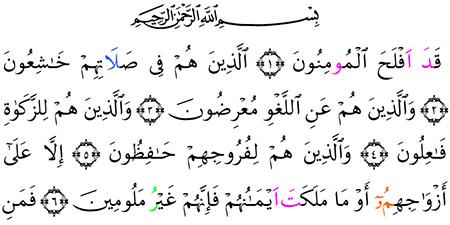 بِسْمِ اللَّهِ الرَّحْمَٰنِ الرَّحِيمِ
قَدَ اَفْلَحَ الْمُومِنُونَ ﴿١﴾ الَّذِينَ هُمْ فِى صَلَاتِهِمْ خَـٰشِعُونَ
﴿٢﴾ وَالَّذِينَ هُمْ عَنِ اللَّغْوِ مُعْرِضُونَ ﴿٣﴾ وَالَّذِينَ هُمْ لِلزَّكَوٰةِ
فَـٰعِلُونَ ﴿٤﴾ وَالَّذِينَ هُمْ لِفُرُوجِهِمْ حَـٰفِظُونَ ﴿٥﴾ إِلَّا عَلَىٰٓ
أَزْوَٰجِهِمُۥٓ أَوْ مَا مَلَكَتَ اَيْمَـٰنُهُمْ فَإِنَّهُمْ غَيْرُ مَلُومِينَ ﴿٦﴾ فَمَنِ